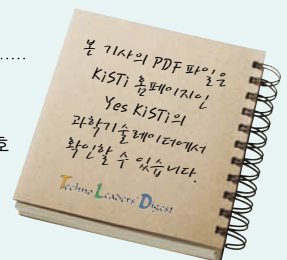 호
본 기사의 PDF 파일은
KiSTi 홈페이지인
Yes KiSTi의
과학기술레이더에서
확인할 수 있습니다.
Techno Leaders' Digest